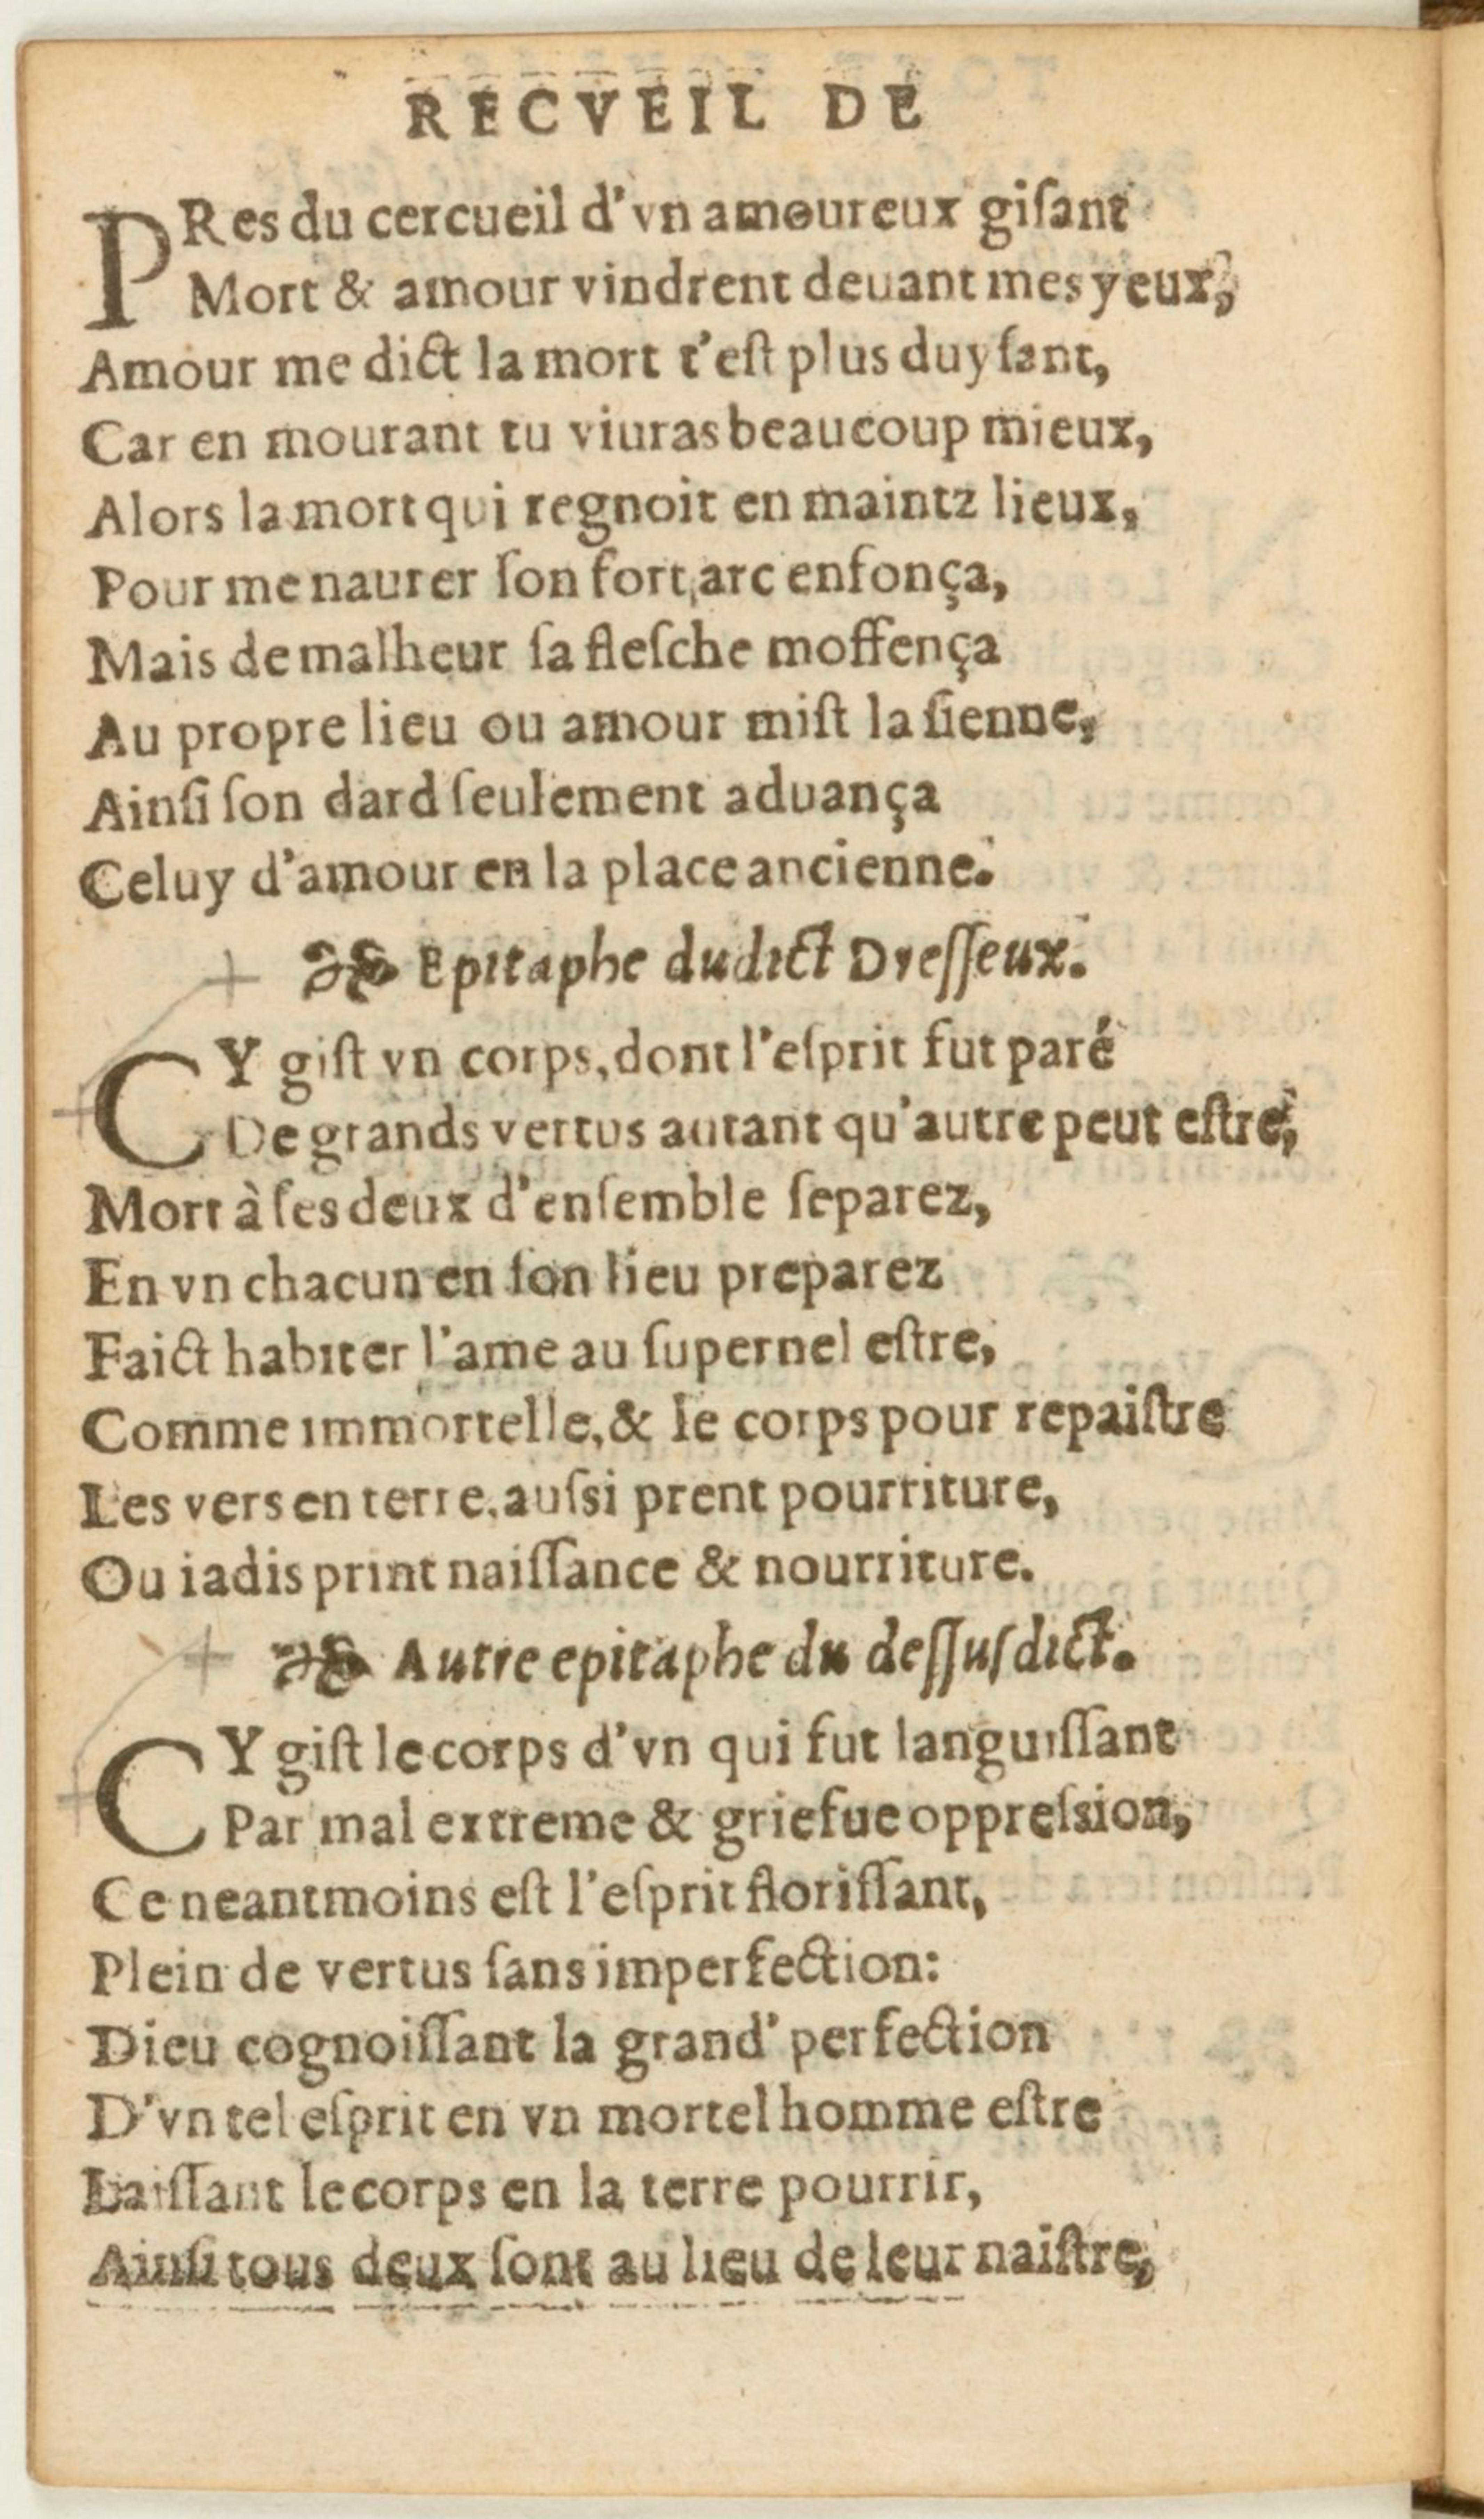 RECVEIL DE
PRes du cercueil d'vn amoureux giſant
Mort & amour vindrent deuant mes yeux,
Amour me dict la mort t'eſt plus duyſant,
Car en mourant tu viuras beaucoup mieux,
Alors la mort qui regnoit en maintz lieux,
Pour me naurer ſon fort arc enfonça,
Mais de malheur ſa fleſche moffença
Au propre lieu ou amour miſt la ſienne,
Ainſi ſon dard ſeulement aduança
Celuy d'amour en la place ancienne.
Epitaphe dudict Dreſſeux.
CY giſt vn corps, dont l'eſprit fut paré
De grands vertus autant qu'autre peut eſtre,
Mort à ſes deux d'enſemble ſeparez,
En vn chacun en ſon lieu preparez
Faict habiter l'ame au ſupernel eſtre,
Comme immortelle, & le corps pour repaiſtre
Les vers en terre, auſsi prent pourriture,
Ou iadis print naiſſance & nourriture.
Autre epitaphe du deſſuſdict.
CY giſt le corps d'vn qui fut languiſſant
Par mal extreme & griefue oppreſsion,
Ce neantmoins eſt l'eſprit floriſſant,
Plein de vertus ſans imperfection:
Dieu cognoiſſant la grand' perfection
D'vn tel eſprit en vn mortel homme eſtre
Laiſſant le corps en la terre pourrir,
Ainſi tous deux ſont au lieu de leur naiſtre,